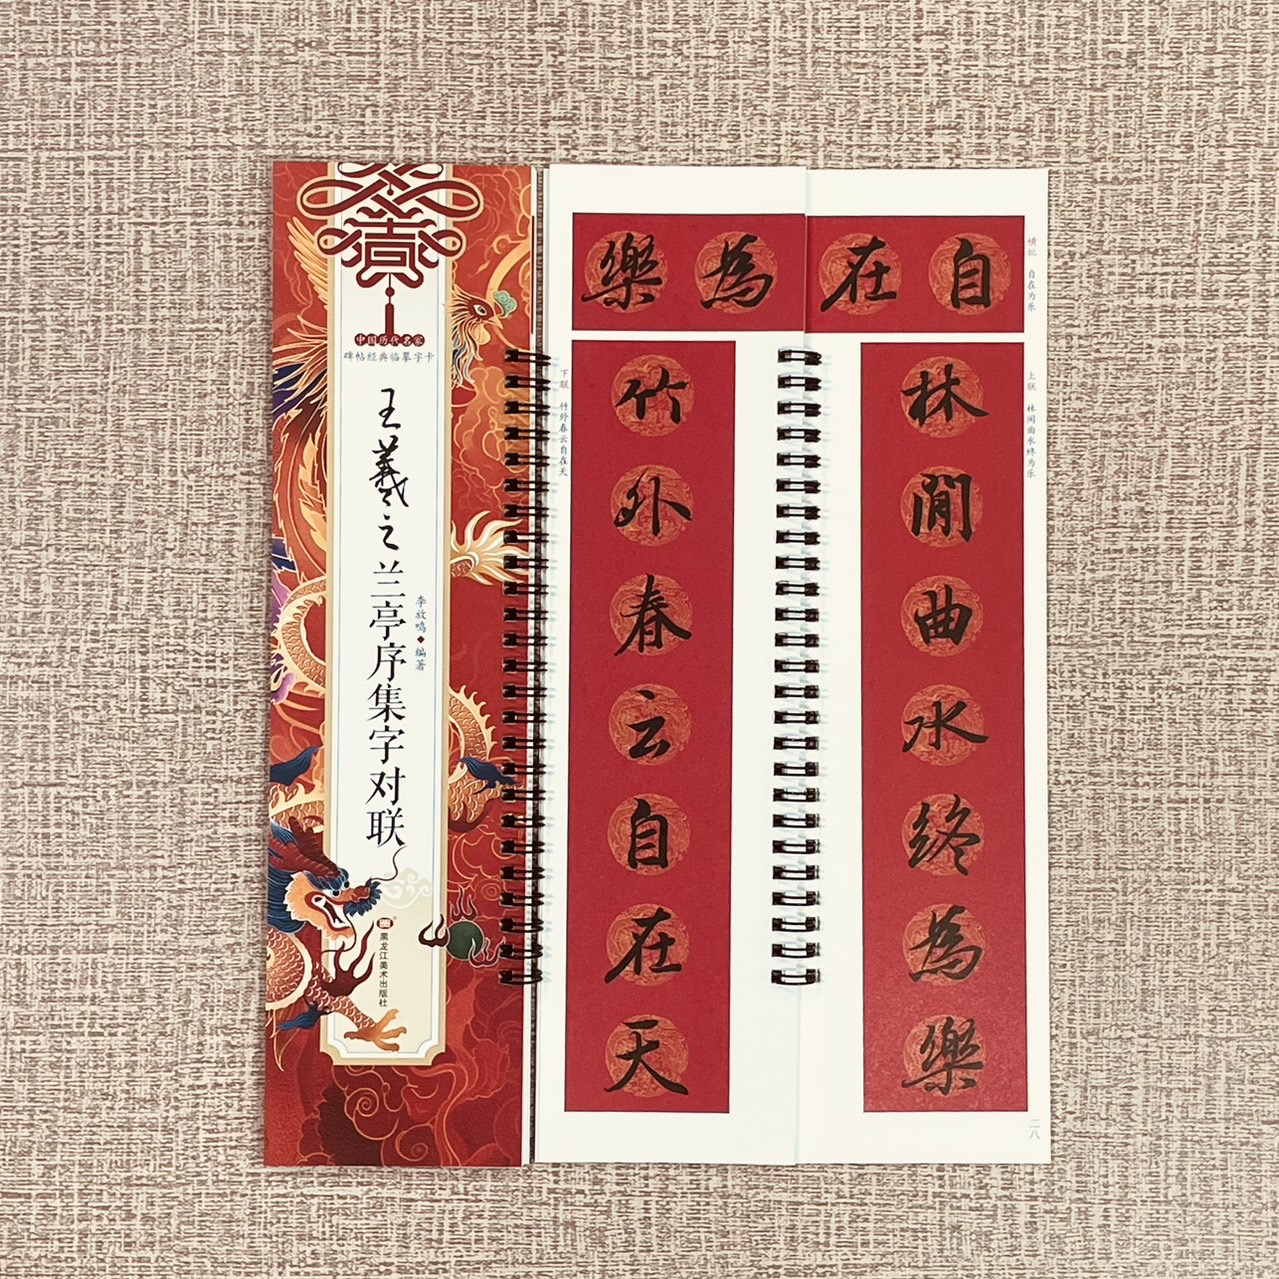 吉
中国历代名家
碑帖经典临摹字卡
王羲之兰亭序集字对联
李放鸣 编著
黑龙江美术出版社
自在為樂
横批 自在为乐
上联 林间曲水终为乐
林閒曲水终為樂
下联 竹外春云自在天
竹外春云自在天
二八